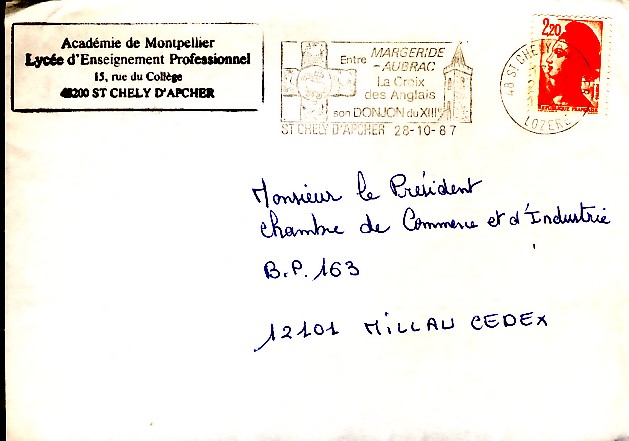 Académie de Montpellier
Lycée d'Enseignement Professionnel
15, rue du Collège
48200 ST CHELY D'APCHER
Entre MARGERIDE
-AUBRAC
La Croix
des Anglais
son DONJON du XIIIe
ST CHELY D'APCHER 28-10-87
2,20
48 ST CHELY
LOZERE
Monsieur le Président
Chambre de Commerce et d'Industrie
B.P. 163
12101 MILLAU CEDEX